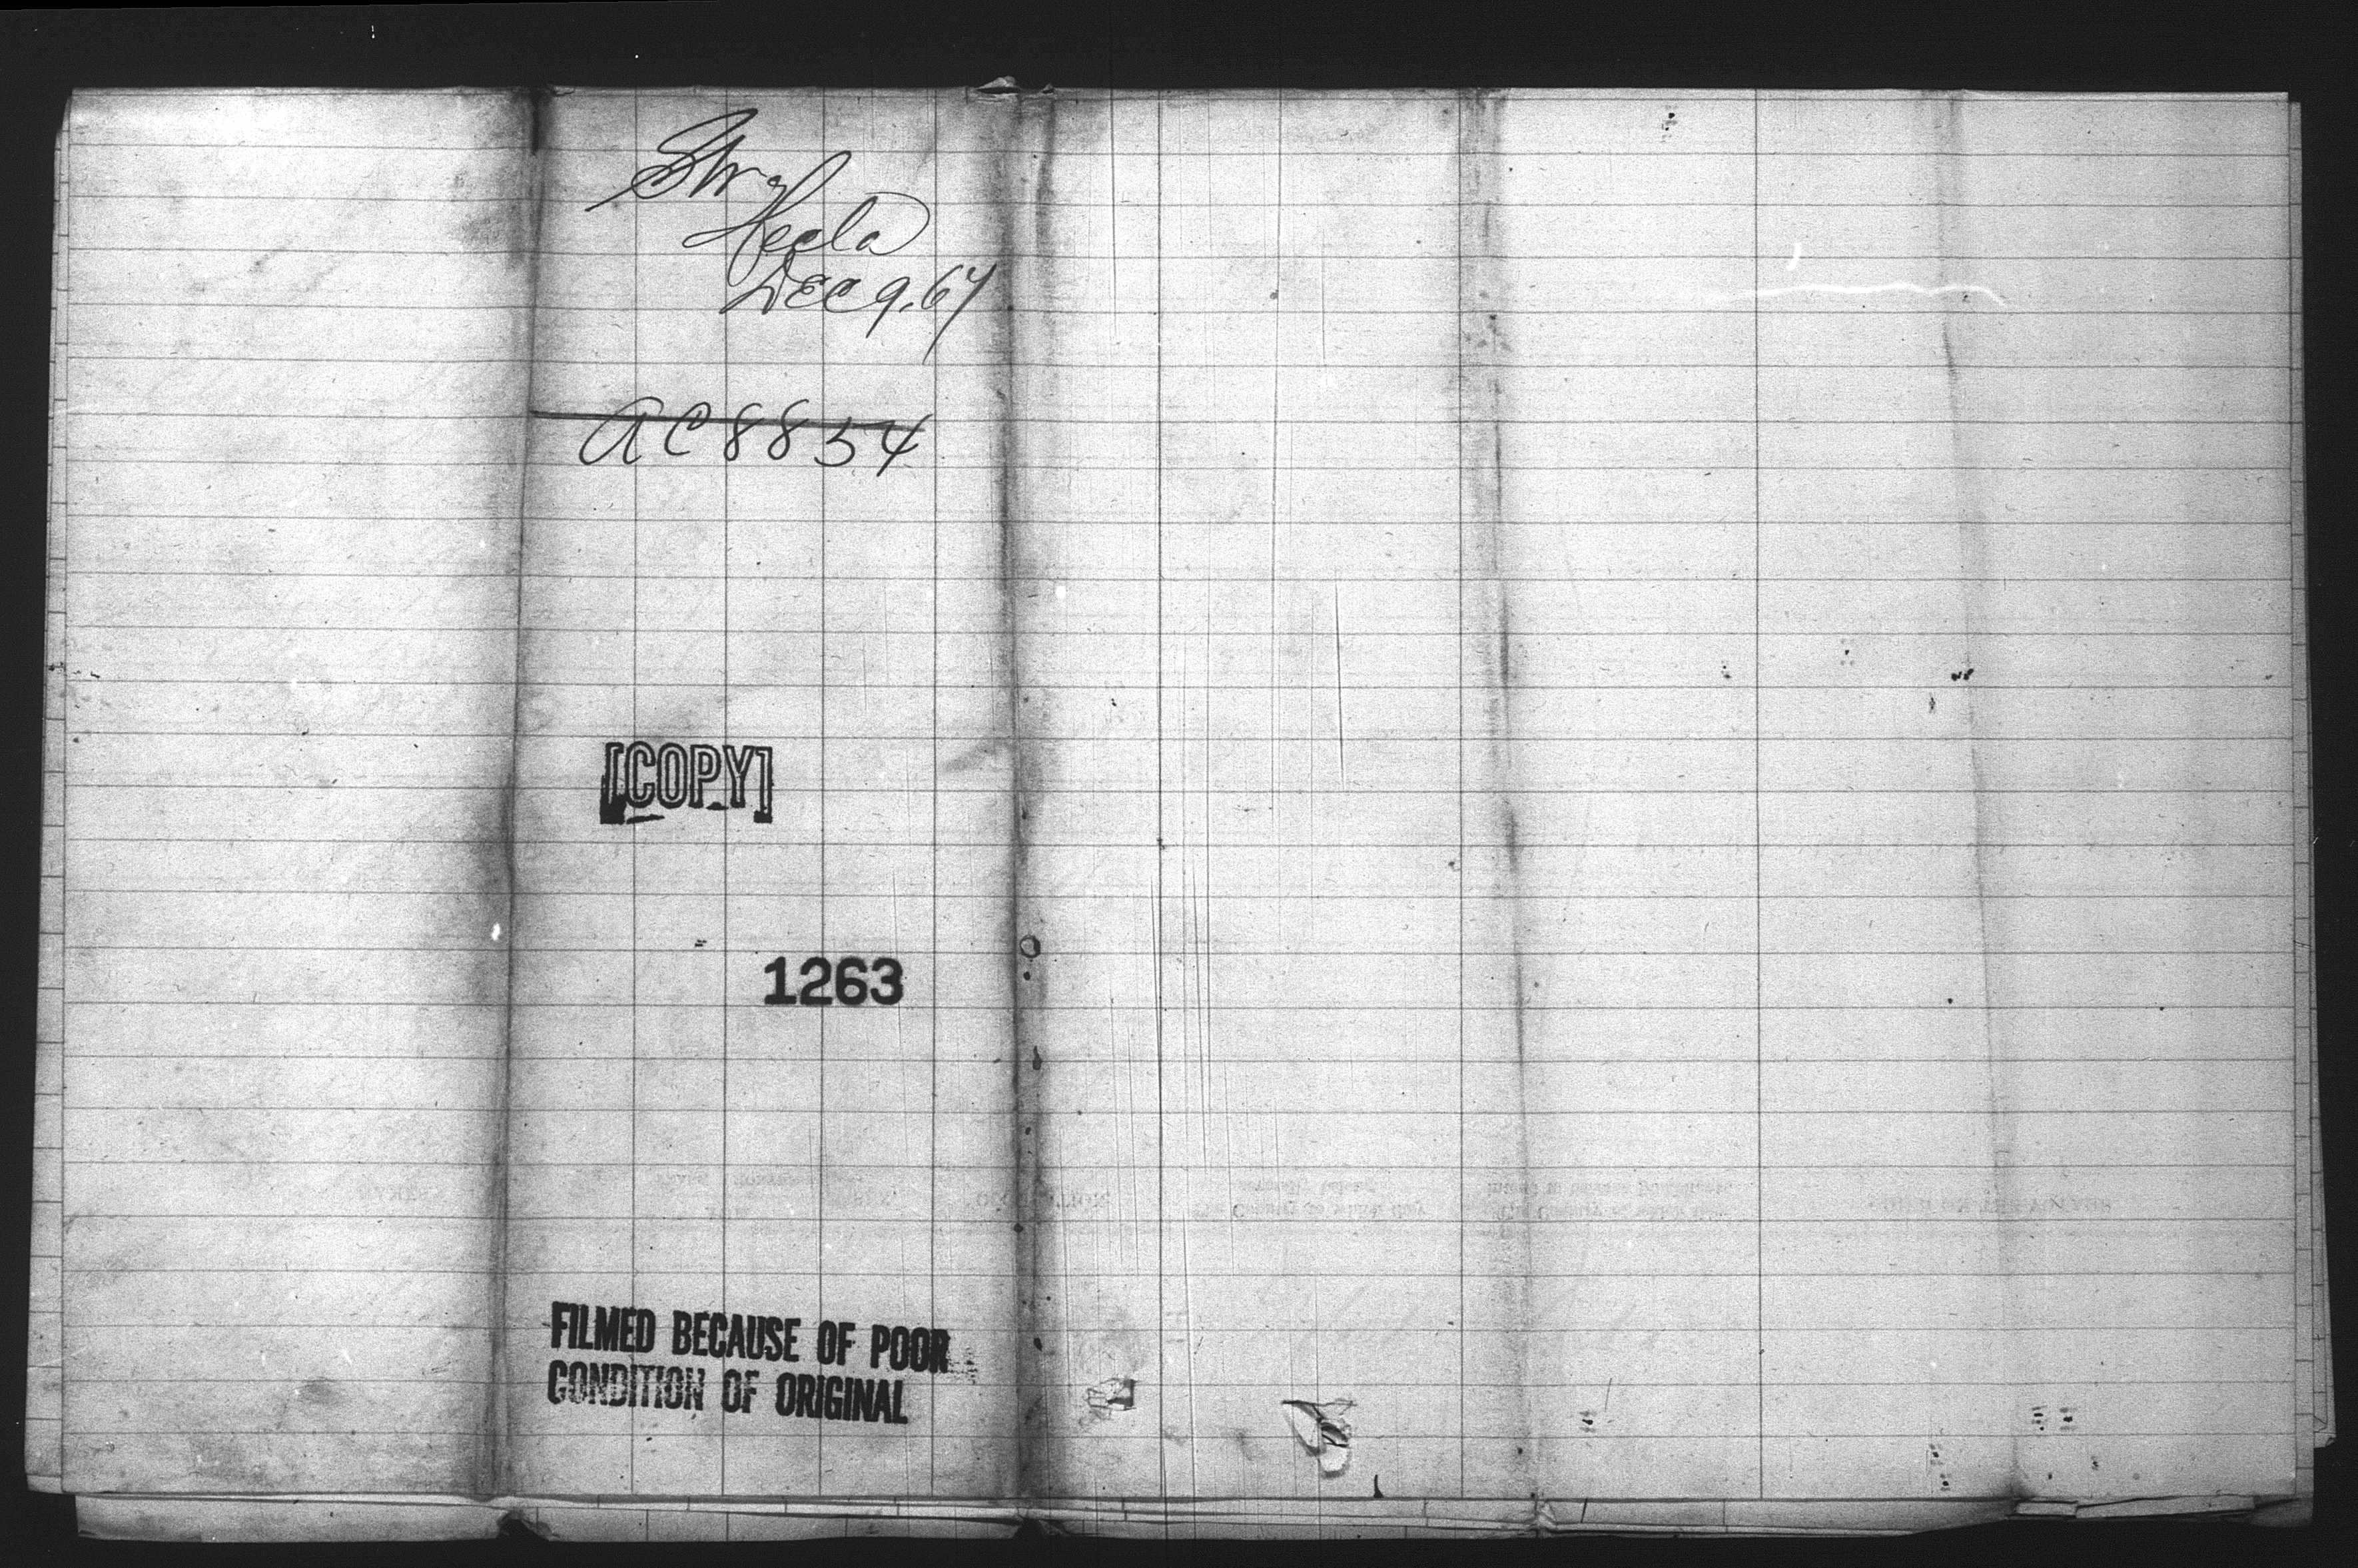 Str
Hecla
Dec 9. 67
AC 8854
[COPY]
1263
FILMED BECAUSE OF POOR
CONDITION OF ORIGINAL